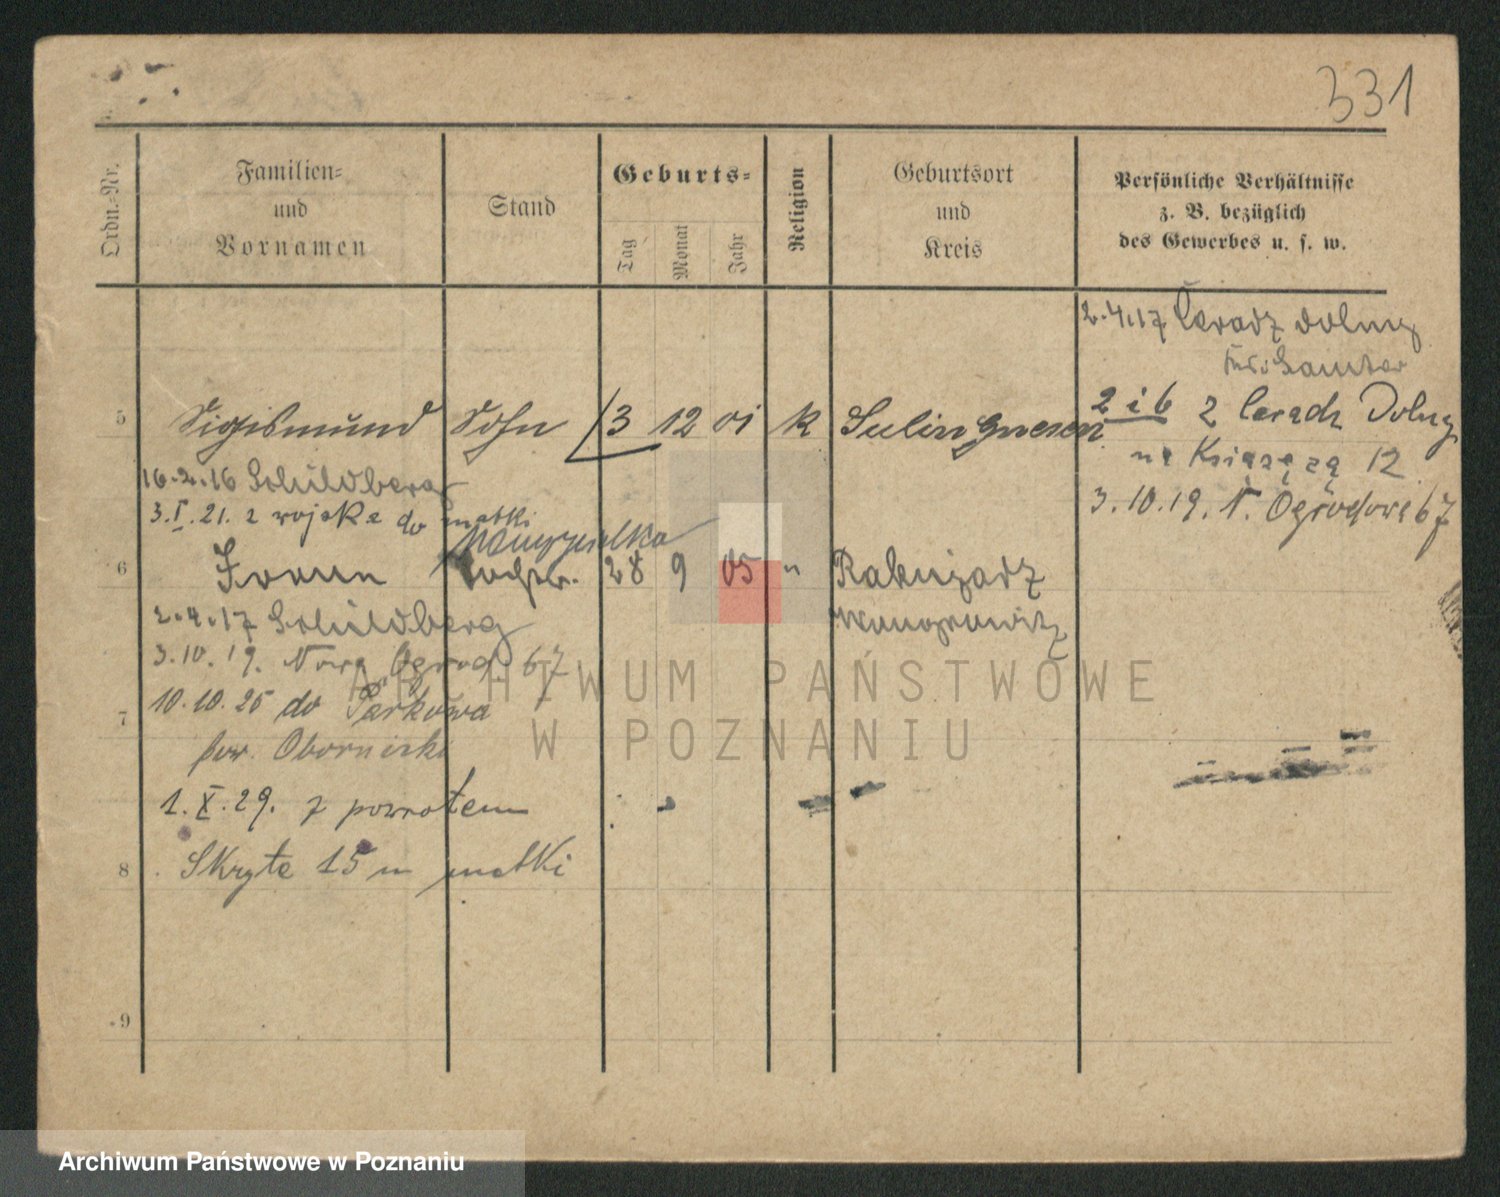 331
Ordn.=Nr.
Familien=
und
Vornamen
Stand
Geburts=
Tag
Monat
Jahr
Religion
Geburtsort
und
Kreis
Persönliche Verhältnisse
z. B. bezüglich
des Gewerbes u. s. w.
2.4.17 Ceradz dolny
Krs. Samter
5 Sigismund Sohn 13 12 01 k Sulin Gnesen
2 i 6 z Ceradz Dolny
na Książęcą 12
3.10.19. N. Ogrodowa 67
16.2.16 Schildberg
3.I.21. z wojska do matki
Nauczycielka
6 Tochter 28 9 05 " Rakujadz
Wongrowitz
2.4.17 Schildberg
3.10.19. Nowa Ogrod. 67
7 10.10.25 do Parkowa
pow. Obornicki
1.X.29. z powrotem
8 Skryta 15 m matki
9
ARCHIWUM PAŃSTWOWE
W POZNANIU
Archiwum Państwowe w Poznaniu